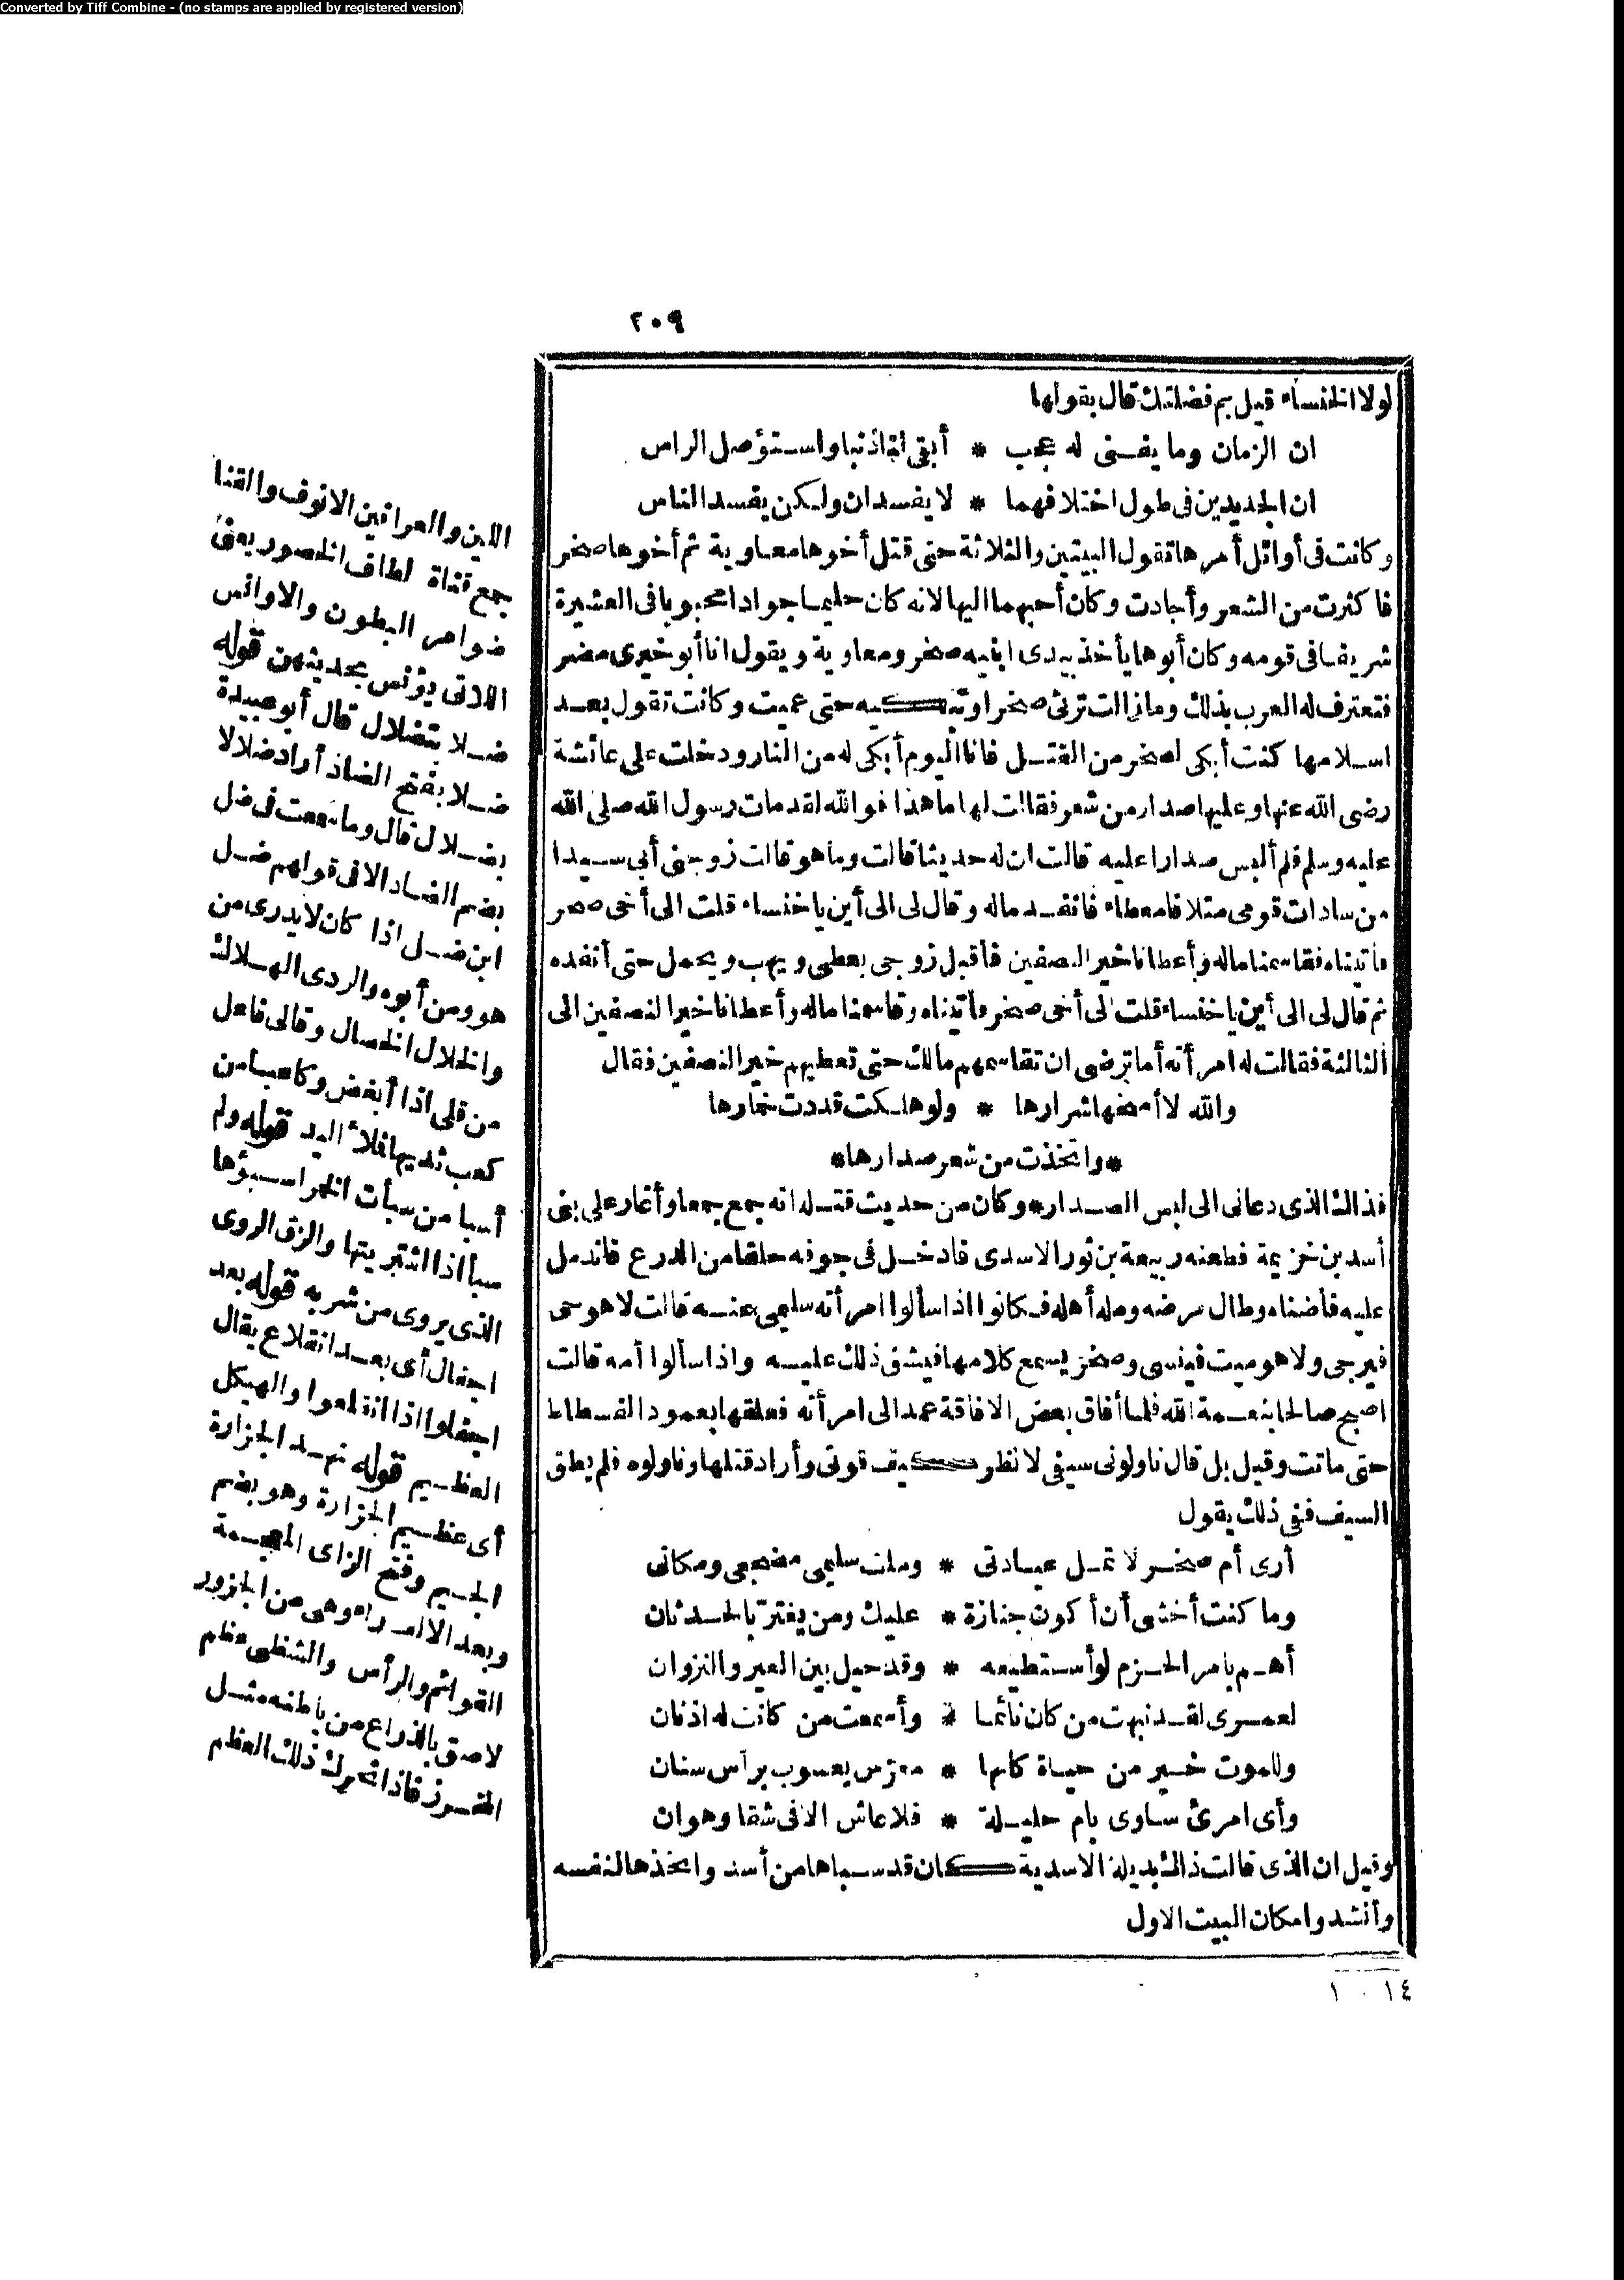 Converted by Tiff Combine - (no stamps are applied by registered version)
٢٠٩
لولا الخنساء قيل بم فضلتك قال بقولها
ان الزمان وما يفنى له عجب * أبقى لنا ذنبا واستؤصل الراس
ان الجديدين فى طول اختلافهما * لا يفسدان ولكن يفسد الناس
وكانت فى أوائل أمرها تقول البيتين والثلاثة حتى قتل أخوها معاوية ثم أخوها صخر
فاكثرت من الشعر وأجادت وكان أحبهما اليها لانه كان حليما جوادا محبوبا فى العشيرة
شريفا فى قومه وكان أبوها يأخذ بيدى ابنيه صخر ومعاوية ويقول انا أبو خيرى مضر
فتعترف له العرب بذلك وما زالت ترثى صخرا وتبكيه حتى عميت وكانت تقول بعد
اسلامها كنت أبكى لصخر من القتل فانا اليوم أبكى له من النار ودخلت على عائشة
رضى الله عنها وعليها صدار من شعر فقالت لها ما هذا فو الله لقد مات رسول الله صلى الله
عليه وسلم فلم ألبس صدارا عليه قالت ان له حديثا قالت وما هو قالت زوجنى أبى سيدا
من سادات قومى متلافا معطاء فانفد ماله وقال لى الى أين يا خنساء قلت الى أخى صخر
فأتيناه فقاسمنا ماله وأعطانا خير النصفين فأقبل زوجى يعطى ويهب ويحمل حتى أنفده
ثم قال لى الى أين يا خنساء قلت الى أخى صخر فأتيناه وقاسمنا ماله وأعطانا خير النصفين الى
الثالثة فقالت له امرأته أما ترضى ان تقاسمهم مالك حتى تعطيهم خير النصفين فقال
والله لا أمنحها شرارها * ولو هلكت قددت خمارها
*واتخذت من شعر صدارها*
فذاك الذى دعانى الى لبس الصدار* وكان من حديث قتله انه جمع جمعا وأغار على بنى
أسد بن خزيمة فطعنه ربيعة بن ثور الاسدى فادخل فى جوفه حلقا من الدرع فاندمل
عليه فأضناه وطال مرضه ومله أهله فكانوا اذا سألوا امرأته سليمى عنه قالت لا هو حى
فيرجى ولا هو ميت فينسى وصخر يسمع كلامها فيشق ذلك عليه واذا سألوا أمه قالت
اصبح صالحا بنعمة الله فلما أفاق بعض الافاقة عمد الى امرأته فعلقها بعمود الفسطاط
حتى ماتت وقيل بل قال ناولونى سيفى لانظر كيف قوتى وأراد قتلها وناولوه فلم يطق
السيف ففى ذلك يقول
أرى أم صخر لا تمل عيادتى * وملت سليمى مضجعى ومكانى
وما كنت أخشى أن أكون جنازة * عليك ومن يغتر بالحدثان
أهم بامر الحزم لو أستطيعه * وقد حيل بين العير والنزوان
لعمرى لقد نبهت من كان نائما * وأسمعت من كانت له اذنان
وللموت خير من حياة كانها * معرس يعسوب برأس سنان
وأى امرئ ساوى بام حليلة * فلا عاش الا فى شقا وهوان
وقيل ان الذى قالت ذلك بديلة الاسدية كان قد سباها من أسد واتخذها لنفسه
وأنشدوا مكان البيت الاول
اللين والعرانين الانوف والقنا
جمع قناة لطاف الخصور يعنى
ضوامر البطون والاوانس
اللاتى يؤنس بحديثهن قوله
ضلا بتضلال قال أبو عبيدة
ضلا بفتح الضاد أراد ضلالا
بضلال قال وما سمعت فى ضل
بضم الضاد الا فى قولهم ضل
ابن ضل اذا كان لا يدرى من
هو ومن أبوه والردى الهلاك
والخلال الخصال وقالى فاعل
من قلى اذا أبغض وكاعبا من
كعب ثديها فلأ اليد قوله ولم
أسبا من سبأت الخمر اسبؤها
سبأ اذا اشتريتها والزق الروى
الذى يروى من شربه قوله بعد
اجفال أى بعد انقلاع يقال
اجفلوا اذا انقلعوا والهيكل
العظيم قوله نهد الجزارة
أى عظيم الجزارة وهو بضم
الجيم وفتح الزاى المعجمة
وبعد الالف راء وهى من الجزور
القوائم والرأس والشظى عظم
لاصق بالذراع من باطنه مثل
المخرز فاذا تحرك ذلك العظم
١٤ . ١